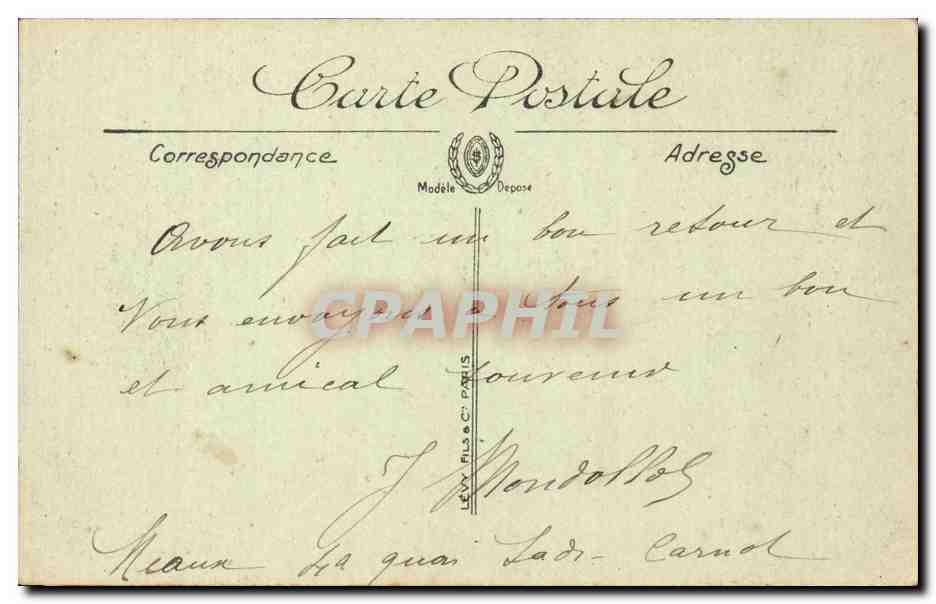 Carte Postale
Correspondance
Adresse
Modèle Déposé
Avons fait un bon retour et
Vous envoyons a tous un bon
et amical souvenir
CPAPHIL
LÉVY FILS & Cie PARIS
J
Meaux quai Sadi-Carnot